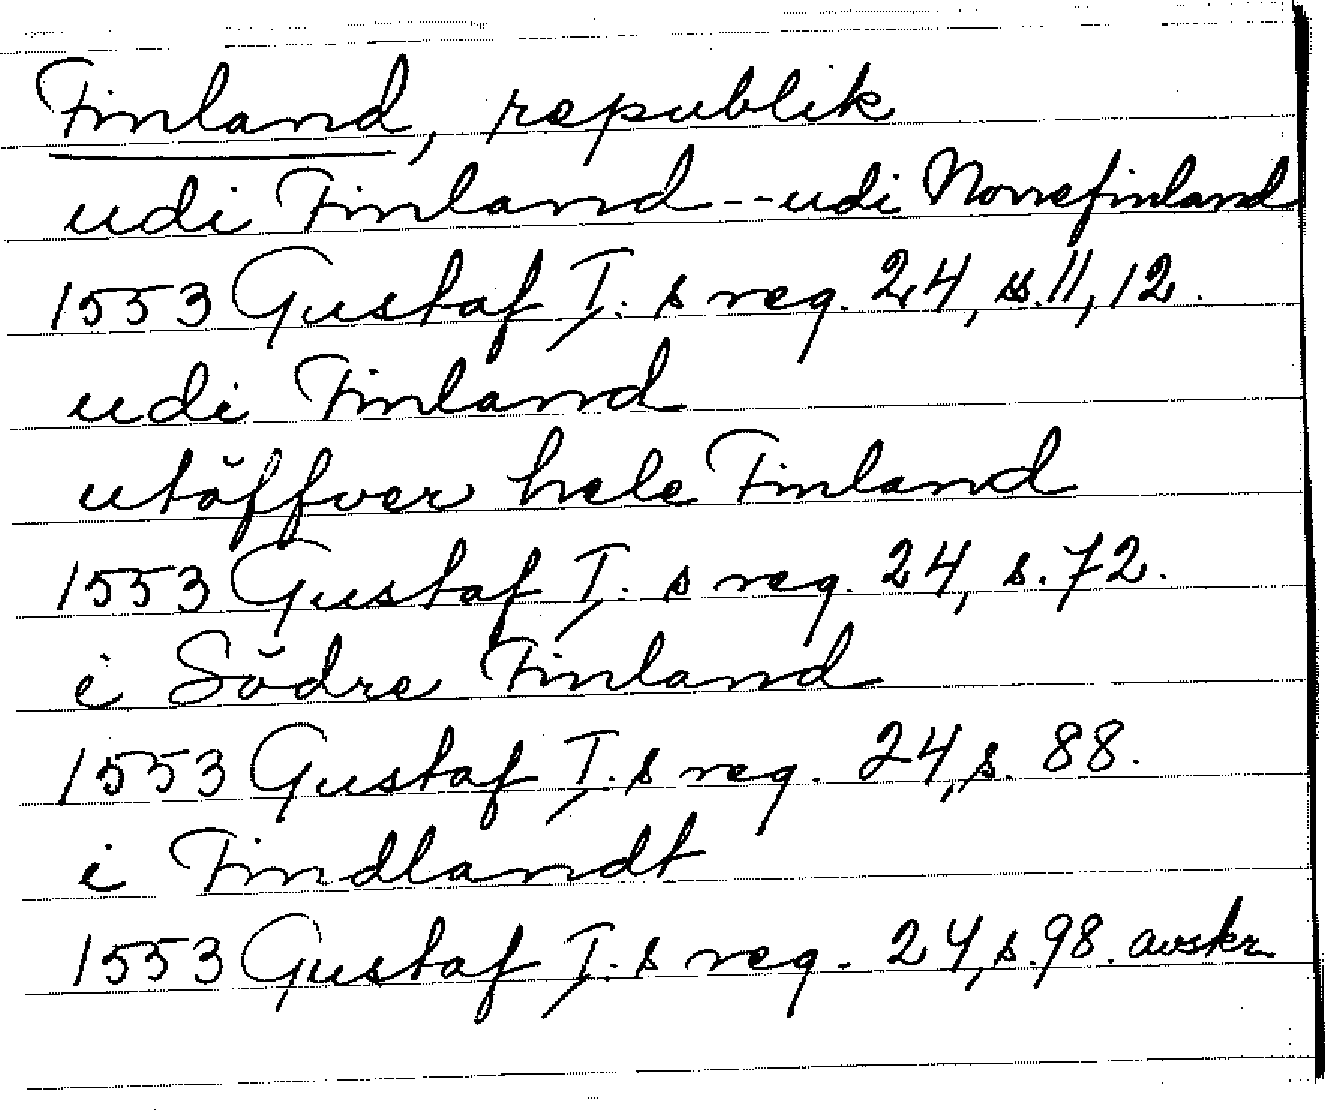 Finland, republik
udi Finland -- udi Norrefinland
1553 Gustaf I:s reg. 24, ss. 11, 12.
udi Finland
utöffver hele Finland
1553 Gustaf I:s reg. 24, s. 72.
i Södre Finland
1553 Gustaf I:s reg. 24, s. 88.
i Findlandt
1553 Gustaf I:s reg. 24, s. 98. avskr.